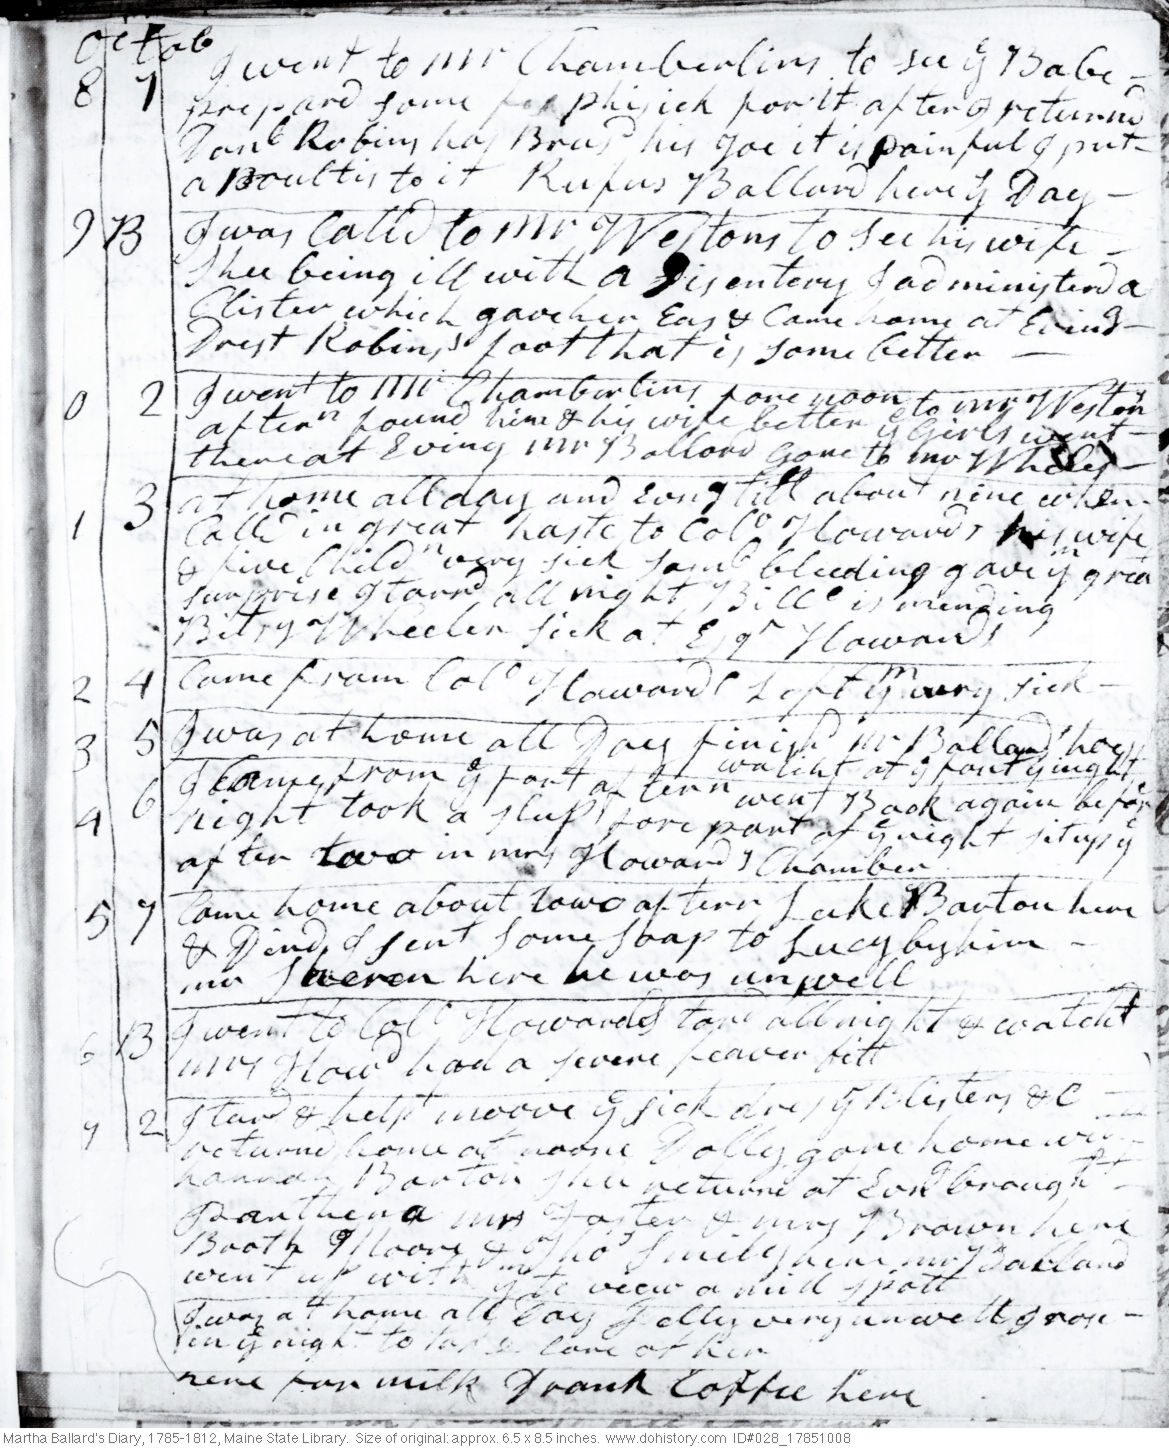 Octob
8 7 I went to mr Chamberlins to see ye Babe
prepard some phisick for it after I returnd
Danl Robins has Brusd his Toe it is painful I put
a Poultis to it Rufus Ballard here ys Day
9 B I was Calld to mr Westons to see his wife
Shee being ill with a Disentery I administerd a
Clister which gave her Eas & Came home at Evning
Drest Robins's foot that is some better
0 2 I went to mr Chamberlins fore noon to mr Westons
aftern found him & his wife better ye Girls went
there at Evng mr Ballard Gone to mr
1 3 at home all day and Evng till about nine when
Calld in great haste to Colo Howards his wife
& five Childn very sick some bleeding gave ym great
surprise I tarrd all night Bille is mending
Bitsy Wheeler sick at Esqr Howards
2 4 Came from Colo Howards Left ym very sick
3 5 I was at home all Day finishd mr Ballards hoes
watcht at ye fort ys night
4 6 I Came from ye fort aftern went Back again before
night took a sleep fore part of ye night sit up ye
after two in mrs Howards Chamber
5 7 Came home about towo aftern Luke Barton here
& Dind I sent some soap to Lucy by him
mr here he was unwell
6 B I went to Colo Howards tard all night & watcht
mrs Howd had a severe feaver fitt
7 2 I tard & helpt moove ye sick dress ye Blisters &C
returnd home at noone Dolly gone home with
hannah Barton shee returnd at Evng brought
Parthena mrs Foster & mrs Brown here
Booth Moore & Thos Smily here mr Ballard
went up with ym to veew a mill spott
I was at home all Day Dolly very unwell I rose
in ye night to take Care of her
here for milk Drank Coffee here
Martha Ballard's Diary, 1785-1812, Maine State Library. Size of original: approx. 6.5 x 8.5 inches. www.dohistory.com ID#028_17851008